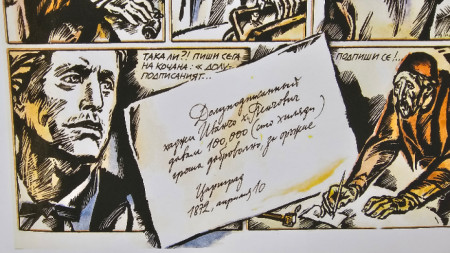 ТАКА ЛИ?! ПИШИ СЕГА
НА КОЧАНА: « ДОЛУ-
ПОДПИСАНИЯТ...
Долуподписанный
хаджи Иванчо х. Пенчович
давам 100,000 (сто хиляди)
гроша доброволно, за оружие
Цариград
1872, априлий 10
ПОДПИШИ СЕ!...